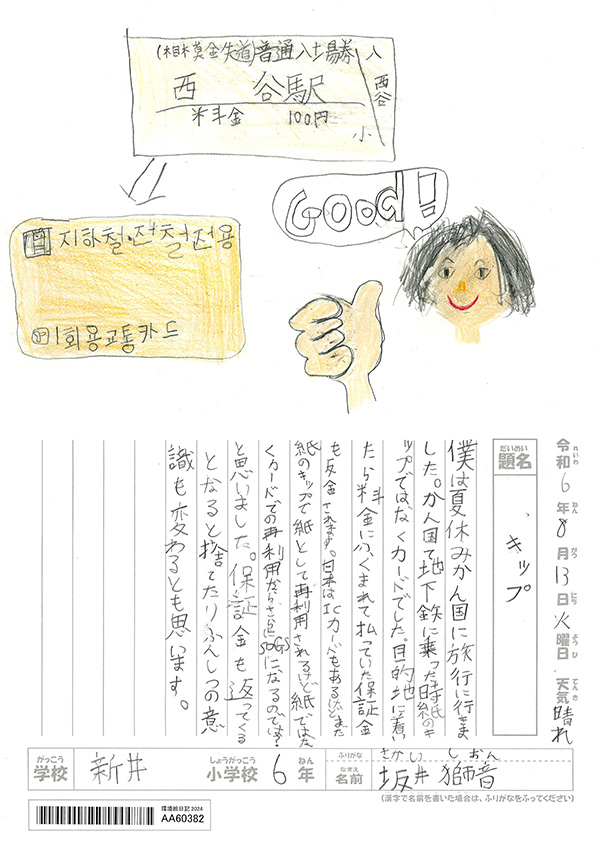 (相模鉄道)普通入場券
西谷駅
料金 100円
小
西谷
지하철·전철전용
1회용교통카드
Good!
令和6年8月13日火曜日 天気晴れ
れいわ ねん がつ にち ようび てんき
だいめい
題名
キップ
僕は夏休みかん国に旅行に行きま
した。かん国で地下鉄に乗った時紙のキ
ップではなくカードでした。目的地に着い
たら料金にふくまれて払っていた保証金
も返金されます。日本はICカードもあるけどまだ
紙のキップで紙として再利用されるけど紙ではな
くカードでの再利用ならさらにSDGsになるのでは?
と思いました。保証金も返ってくる
となると捨てたりふんしつの意
識も変わるとも思います。
がっこう
学校 新井
しょうがっこう ねん
小学校 6年
ふりがな さかい しおん
なまえ
名前 坂井獅音
(漢字で名前を書いた場合は、ふりがなをふってください)
環境絵日記2024
AA60382